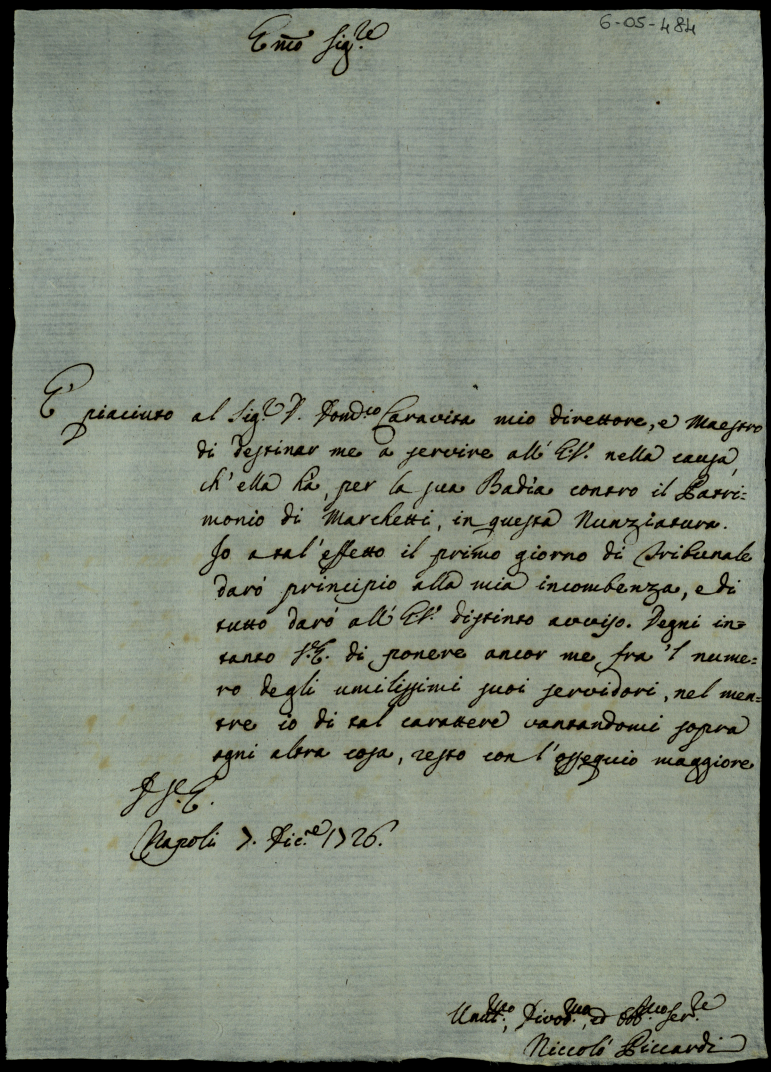 6-05-484
Emo Sig.re
E' piaciuto al Sig.r D. Dom.co Caravita mio direttore, e Maestro
di destinar me a servire all' E.V. nella causa,
ch'ella hà, per la sua Badia contro il Patri:
monio di Marchetti, in questa Nunziatura.
Io a tal' effetto il primo giorno di Tribunale
darò principio alla mia incombenza, e di
tutto darò all' E.V. distinto avviso. Degni in=
tanto V.E. di ponere ancor me fra 'l nume=
ro degli umilissimi suoi servidori, nel men=
tre io di tal carattere vantandomi sopra
ogni altra cosa, resto con l'ossequio maggiore
D V.E.
Napoli 7. Dic.e 1726.
Umil.mo, Divot.mo, ed Obb.mo Ser.re
Niccolò Piccardi